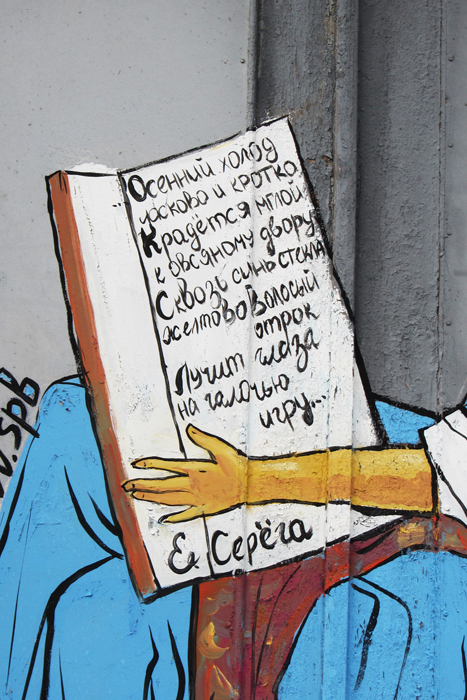 Осенний холод
ласково и кротко
Крадётся мглой
к овсяному двору
Сквозь синь стекла
желтоволосый
отрок
Лучит глаза
на галочью
игру...
Е. Серёга
v.SPB